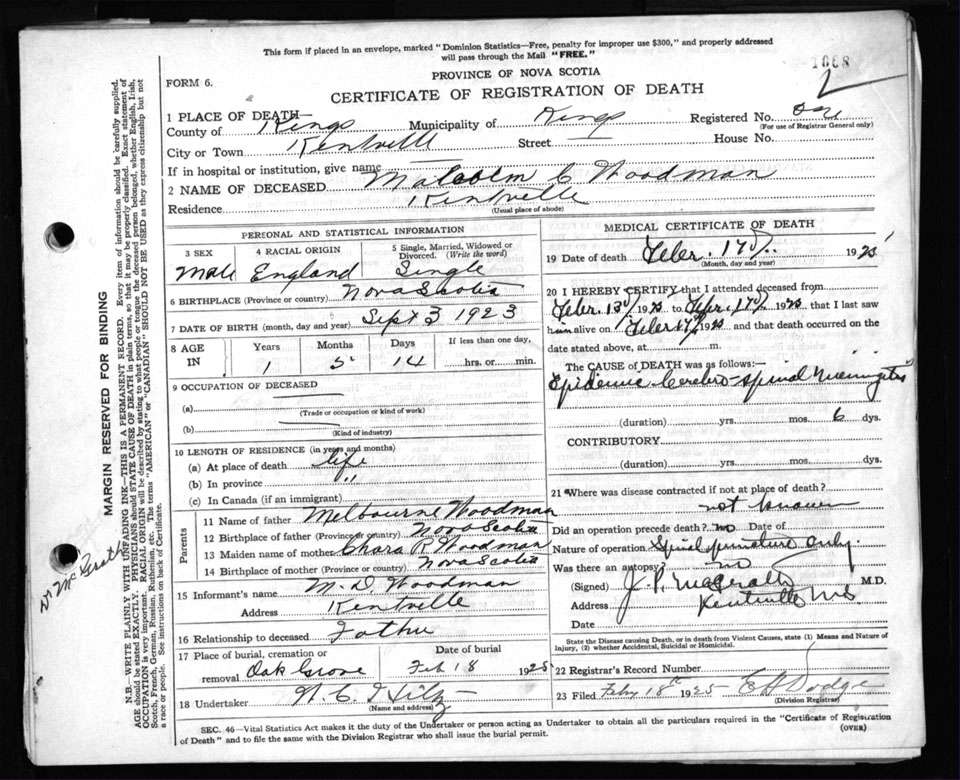 This form if placed in an envelope, marked "Dominion Statistics—Free, penalty for improper use $300," and properly addressed
will pass through the Mail "FREE."
1068
2
PROVINCE OF NOVA SCOTIA
FORM 6.
CERTIFICATE OF REGISTRATION OF DEATH
1 PLACE OF DEATH—
County of Kings Municipality of Kings Registered No.
(For use of Registrar General only)
City or Town Kentville Street House No.
If in hospital or institution, give name
2 NAME OF DECEASED Malcolm C Woodman
Residence Kentville
(Usual place of abode)
PERSONAL AND STATISTICAL INFORMATION
3 SEX Male
4 RACIAL ORIGIN England
5 Single, Married, Widowed or Divorced. (Write the word) Single
6 BIRTHPLACE (Province or country) Nova Scotia
7 DATE OF BIRTH (month, day and year) Sept 3 1923
8 AGE IN Years 1 Months 5 Days 14 If less than one day, hrs. or min.
9 OCCUPATION OF DECEASED
(a)
(Trade or occupation or kind of work)
(b)
(Kind of industry)
10 LENGTH OF RESIDENCE (in years and months)
(a) At place of death life
(b) In province "
(c) In Canada (if an immigrant)
Parents
11 Name of father Melbourne Woodman
12 Birthplace of father (Province or country) Nova Scotia
13 Maiden name of mother R Woodman
14 Birthplace of mother (Province or country) Nova Scotia
15 Informant's name M. D Woodman
Address Kentville
16 Relationship to deceased Father
17 Place of burial, cremation or removal Oak Grove
Date of burial Feb 18 1925
18 Undertaker
(Name and address)
MEDICAL CERTIFICATE OF DEATH
19 Date of death Feber. 17th 1925
(Month, day and year)
20 I HEREBY CERTIFY that I attended deceased from
Feber. 13th 1925 to Febr. 17th 1925 that I last saw
him alive on Feber 17th 1925 and that death occurred on the
date stated above, at m.
The CAUSE OF DEATH was as follows:
Epidemic Cerebro-spinal Meningitis
(duration) yrs. mos. 6 dys.
CONTRIBUTORY
(duration) yrs. mos. dys.
21 Where was disease contracted if not at place of death?
not known
Did an operation precede death? no Date of
Nature of operation Spinal puncture only.
Was there an autopsy? no
(Signed) J. P. McGrath M.D.
Address Kentville N.S.
Date
State the Disease causing Death, or in death from Violent Causes, state (1) Means and Nature of
Injury, (2) whether Accidental, Suicidal or Homicidal.
22 Registrar's Record Number
23 Filed Feby 18th 1925 Dodge
(Division Registrar)
SEC. 46—Vital Statistics Act makes it the duty of the Undertaker or person acting as Undertaker to obtain all the particulars required in the "Certificate of Registration
of Death" and to file the same with the Division Registrar who shall issue the burial permit.
(OVER)
MARGIN RESERVED FOR BINDING
N.B.—WRITE PLAINLY WITH UNFADING INK—THIS IS A PERMANENT RECORD. Every item of information should be carefully supplied.
AGE should be stated EXACTLY. PHYSICIANS should STATE CAUSE OF DEATH in plain terms, so that it may be properly classified. Exact statement of
OCCUPATION is very important. RACIAL ORIGIN will be described by stating to what people or tongue the deceased person belonged, whether English, Irish,
Scotch, French, German, Russian, Ruthenian, etc. The terms "AMERICAN" or "CANADIAN" SHOULD NOT BE USED as they express citizenship but not
a race or people. See instructions on back of Certificate.
Dr McGrath